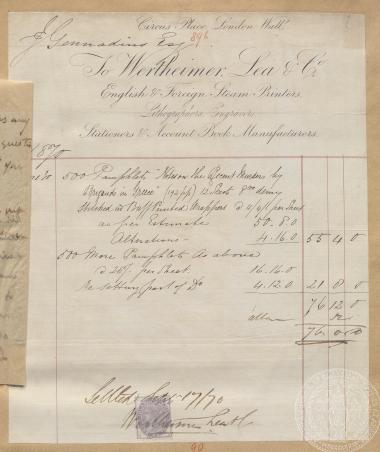 Circus Place, London Wall,
896
J. Gennadius Esq
To Wertheimer, Lea & Co.
English & Foreign Steam Printers,
Lithographers, Engravers,
Stationers & Account Book Manufacturers.
1870
500 Pamphlets "Notes on the Recent Murders by
Brigands in Greece" (192 pp) 12 Sheets 8vo demy
stitched in Buff Printed Wrappers
as per Estimate 50.8.0
Alterations 4.16.0 55 4 0
500 More Pamphlets As above
per Sheet. 16.16.0
Re setting part of Do 4.12.0 21 8 0
76 12 0
12
76 0 0
Settled 17/70
Wertheimer Lea & Co
90